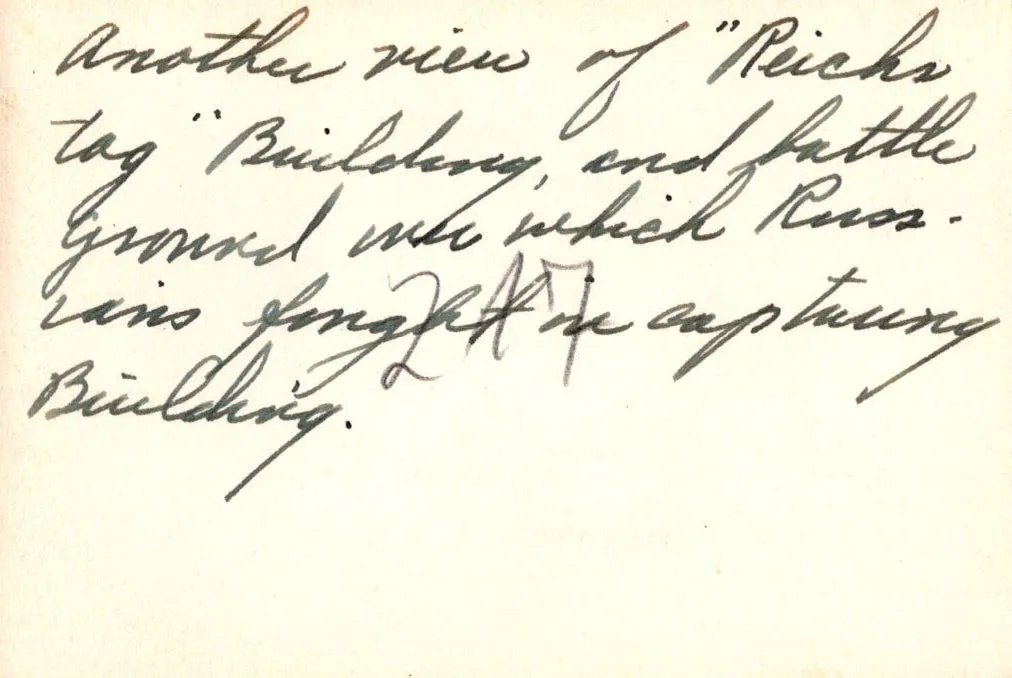 Another view of "Reichs
tag" Building, and battle
ground over which Russ-
ians fought in capturing
Building.
247